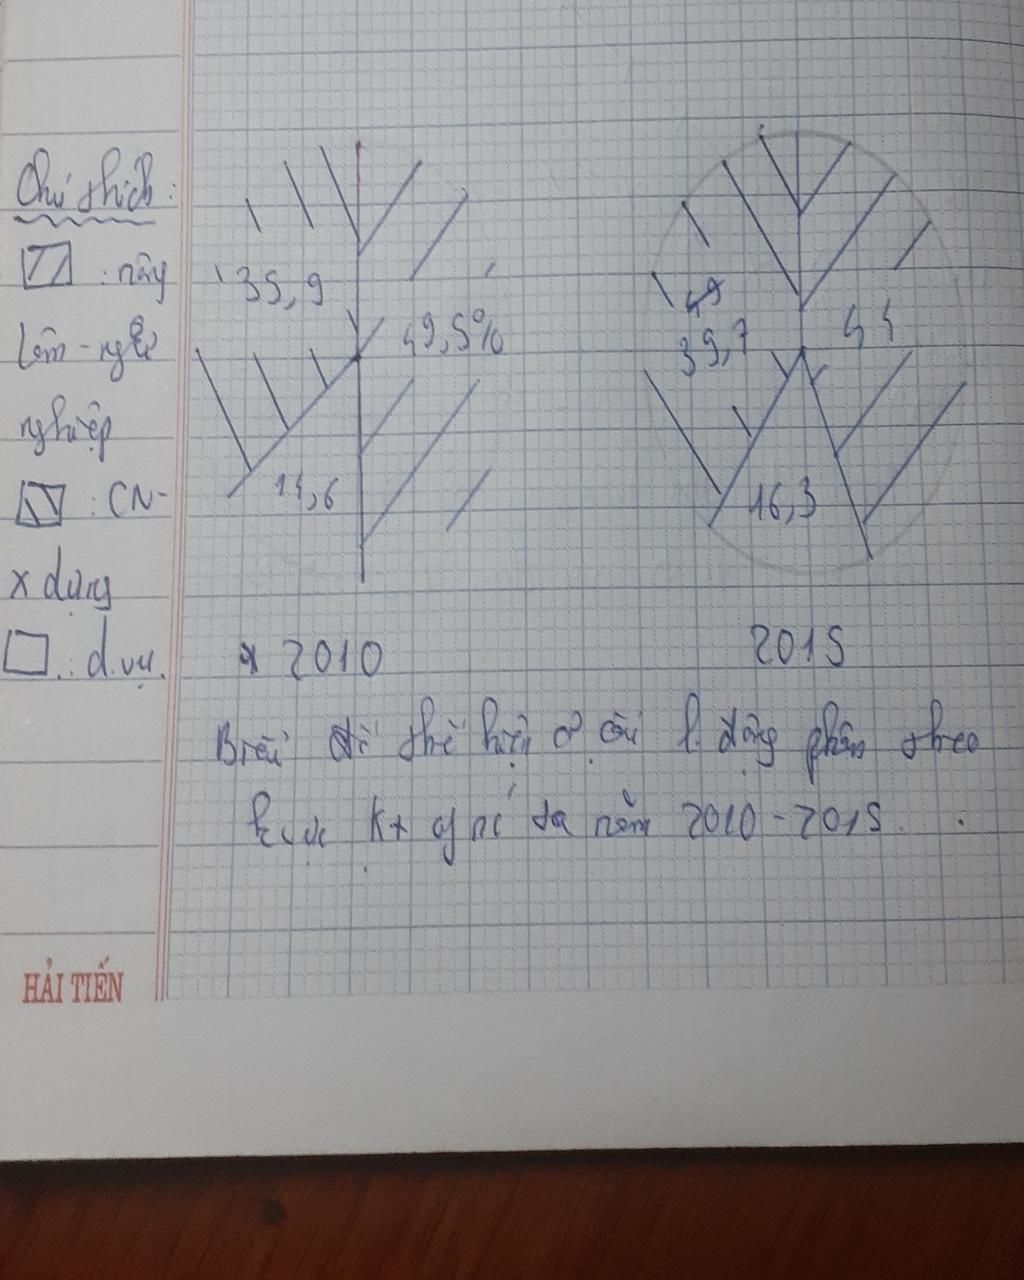 Chú thích:
: nây
lâm - ngư
nghiệp
: CN-
x dựng
: d.vụ.
35,9
49,5%
14,6
39,7
44
16,3
2010
2015
Biểu đồ thể hiện cơ cấu l. động phân theo
k.vực Kt nc ta năm 2010 - 2015.
HẢI TIẾN